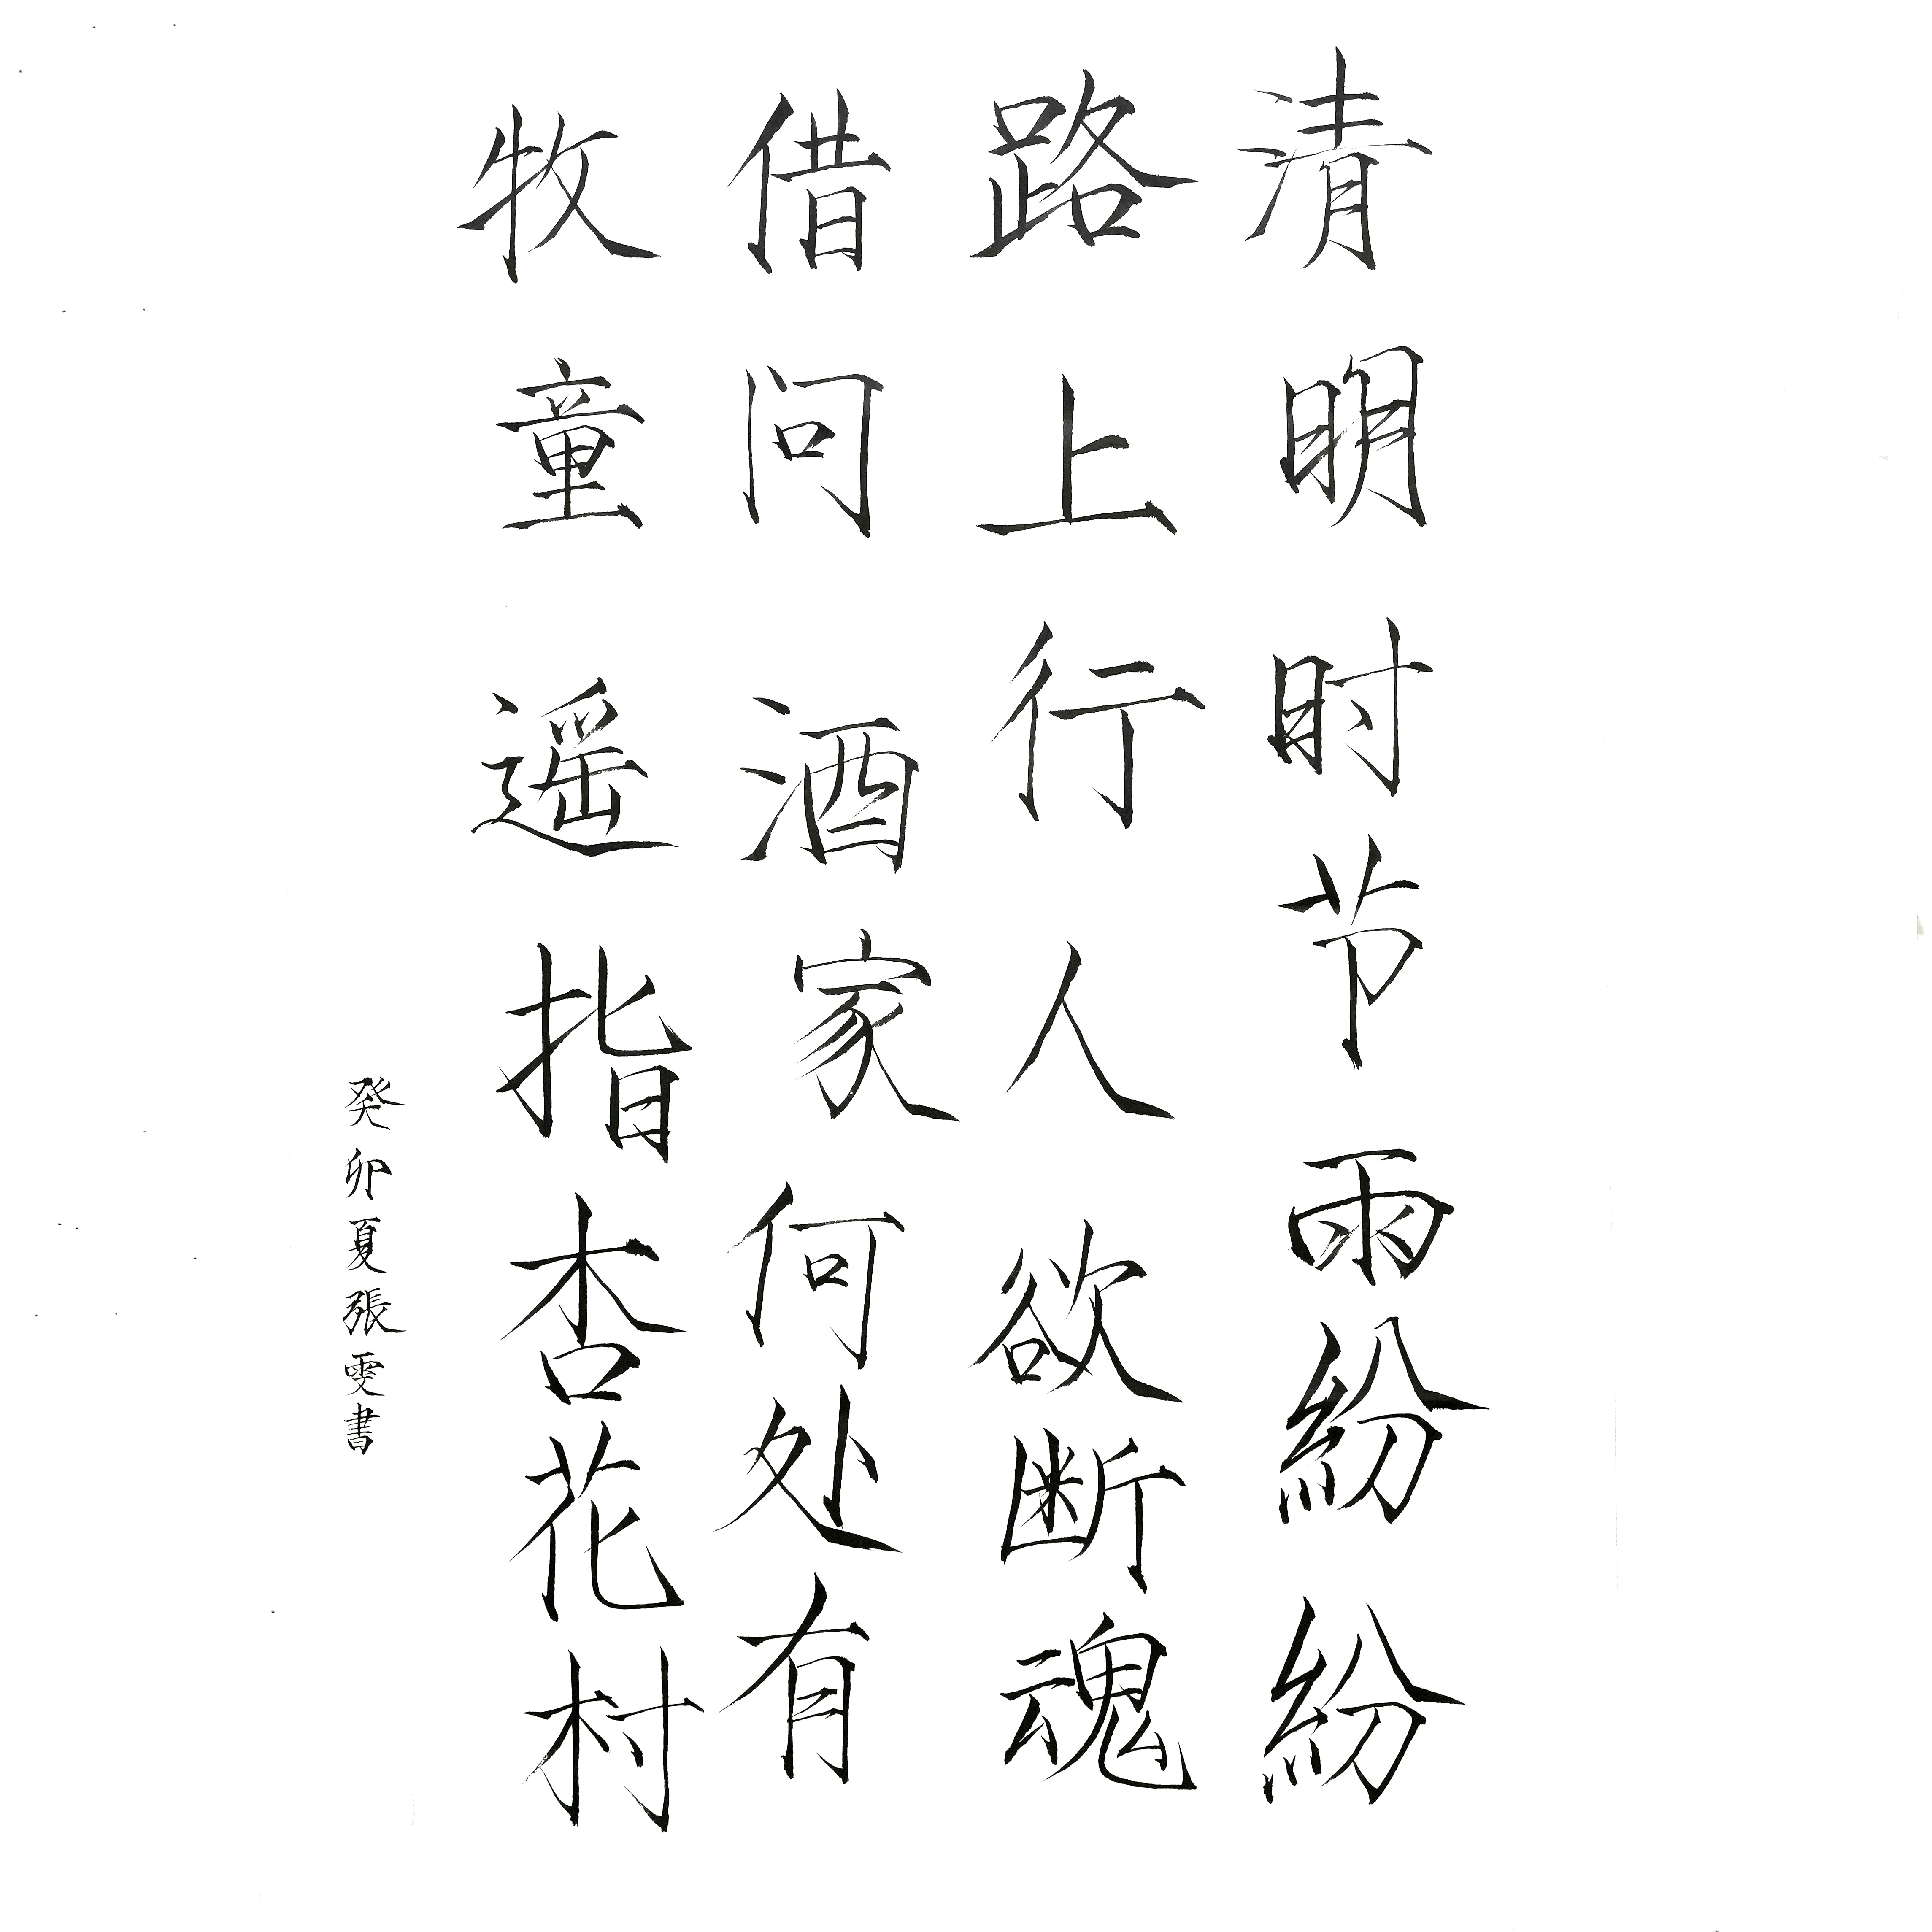 清明时节雨紛紛
路上行人欲断魂
借问酒家何处有
牧童遥指杏花村
癸卯夏張雯書